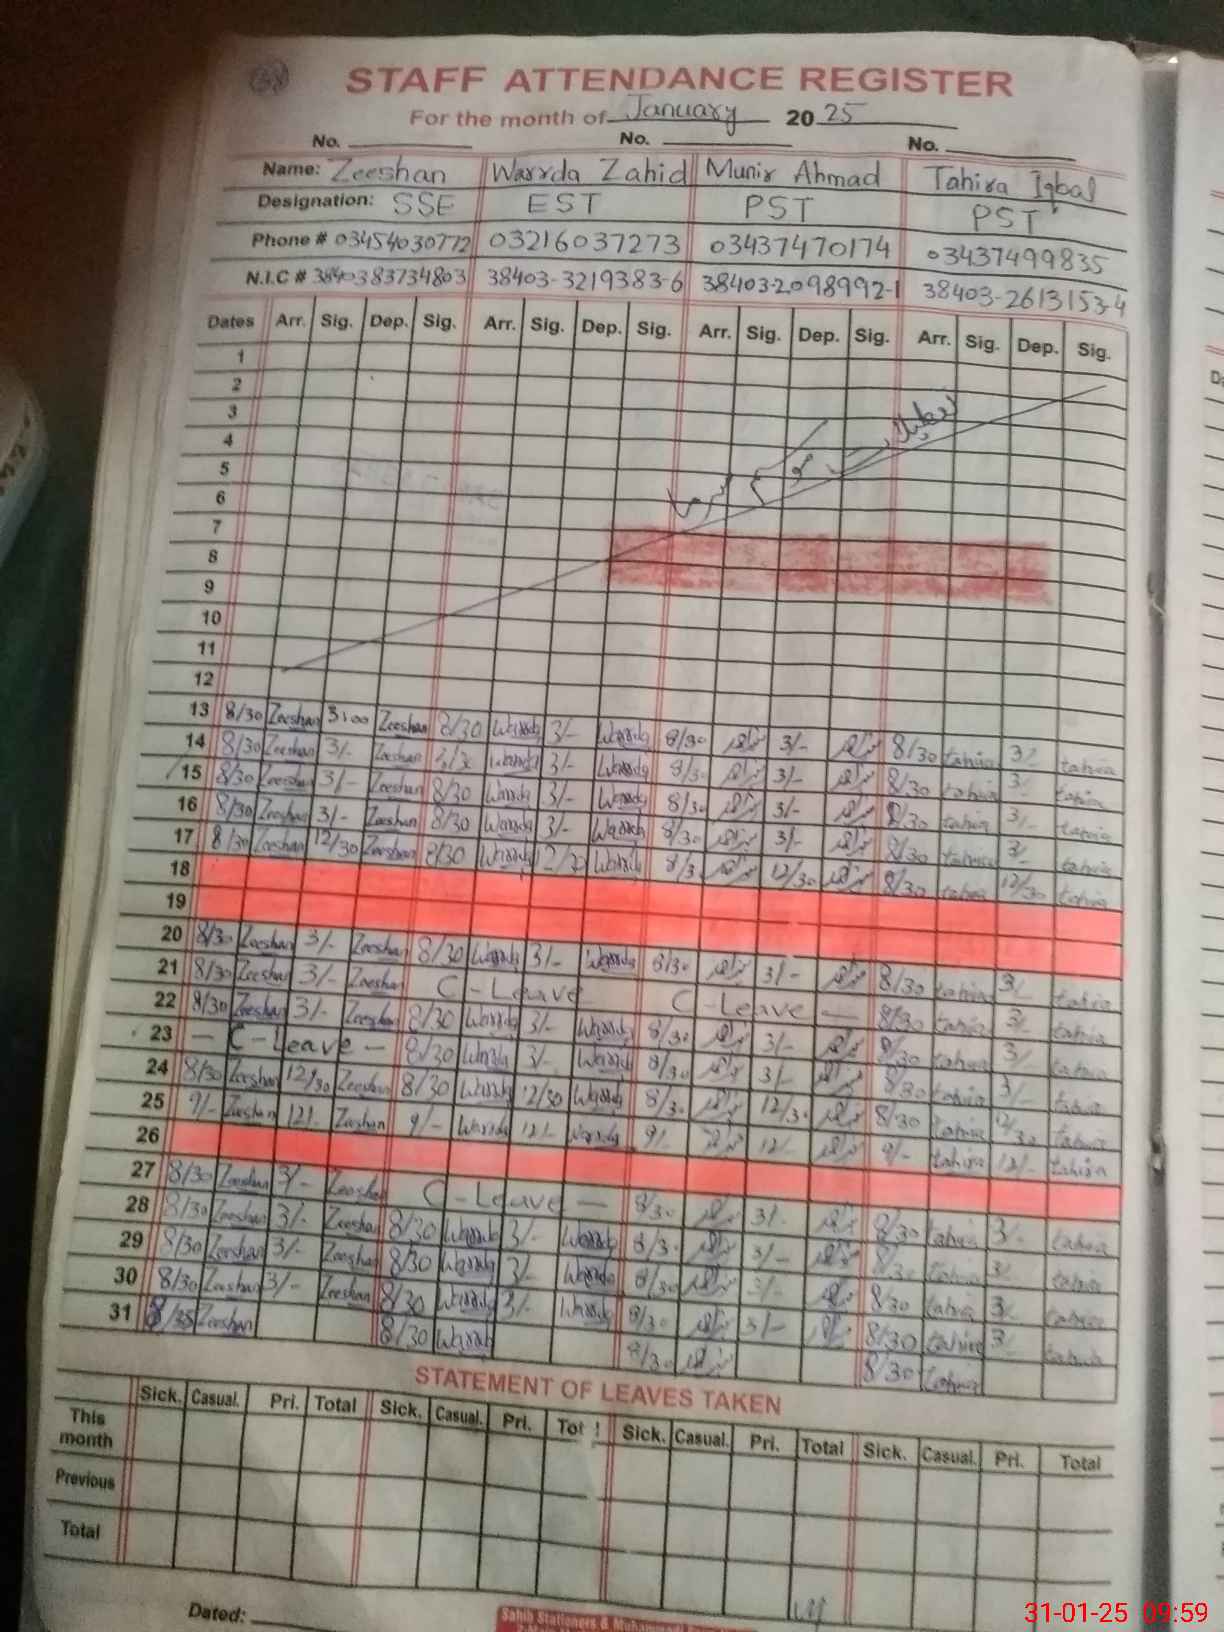 38
STAFF ATTENDANCE REGISTER
For the month of January 2025
No. No. No.
Name: Zeeshan Warrda Zahid Munir Ahmad Tahira Iqbal
Designation: SSE EST PST PST
Phone # 03454030772 03216037273 03437470174 03437499835
N.I.C # 3840383734803 38403-3219383-6 38403-2098992-1 38403-2613153-4
Dates Arr. Sig. Dep. Sig. Arr. Sig. Dep. Sig. Arr. Sig. Dep. Sig. Arr. Sig. Dep. Sig.
1
2
3
4
5
6
7
8
9
10
11
12
13 8/30 Zeeshan 3:00 Zeeshan 8/30 Warrda 3/- Warrda 8/30 3/- 8/30 tahira 3/- tahira
14 8/30 Zeeshan 3/- Zeeshan 8/30 Warrda 3/- Warrda 8/30 3/- 8/30 tahira 3/- tahira
15 8/30 Zeeshan 3/- Zeeshan 8/30 Warrda 3/- Warrda 8/30 3/- 8/30 tahira 3/- tahira
16 8/30 Zeeshan 3/- Zeeshan 8/30 Warrda 3/- Warrda 8/30 3/- 8/30 tahira 3/- tahira
17 8/30 Zeeshan 12/30 Zeeshan 8/30 Warrda 12/30 Warrda 8/30 12/30 8/30 tahira 12/30 tahira
18
19
20 8/30 Zeeshan 3/- Zeeshan 8/30 Warrda 3/- Warrda 8/30 3/- 8/30 tahira 3/- tahira
21 8/30 Zeeshan 3/- Zeeshan C - Leave C - Leave - 8/30 tahira 3/- tahira
22 8/30 Zeeshan 3/- Zeeshan 8/30 Warrda 3/- Warrda 8/30 3/- 8/30 tahira 3/- tahira
23 - C - Leave - 8/30 Warrda 3/- Warrda 8/30 3/- 8/30 tahira 3/- tahira
24 8/30 Zeeshan 12/30 Zeeshan 8/30 Warrda 12/30 Warrda 8/30 12/30 8/30 tahira 12/30 tahira
25 9/- Zeeshan 12/- Zeeshan 9/- Warrda 12/- Warrda 9/- 12/- 9/- tahira 12/- tahira
26
27 8/30 Zeeshan 3/- Zeeshan C - Leave - 8/30 3/- 8/30 tahira 3/- tahira
28 8/30 Zeeshan 3/- Zeeshan 8/30 Warrda 3/- Warrda 8/30 3/- 8/30 tahira 3/- tahira
29 8/30 Zeeshan 3/- Zeeshan 8/30 Warrda 3/- Warrda 8/30 3/- 8/30 tahira 3/- tahira
30 8/30 Zeeshan 3/- Zeeshan 8/30 Warrda 3/- Warrda 8/30 3/- 8/30 tahira 3/- tahira
31 Zeeshan 8/30 Warrda 8/30 8/30 tahira
STATEMENT OF LEAVES TAKEN
Sick. Casual. Pri. Total Sick. Casual. Pri. Sick. Casual. Pri. Total Sick. Casual. Pri. Total
This month
Previous
Total
Dated:
Sahib Stationers &
31-01-25 09:59